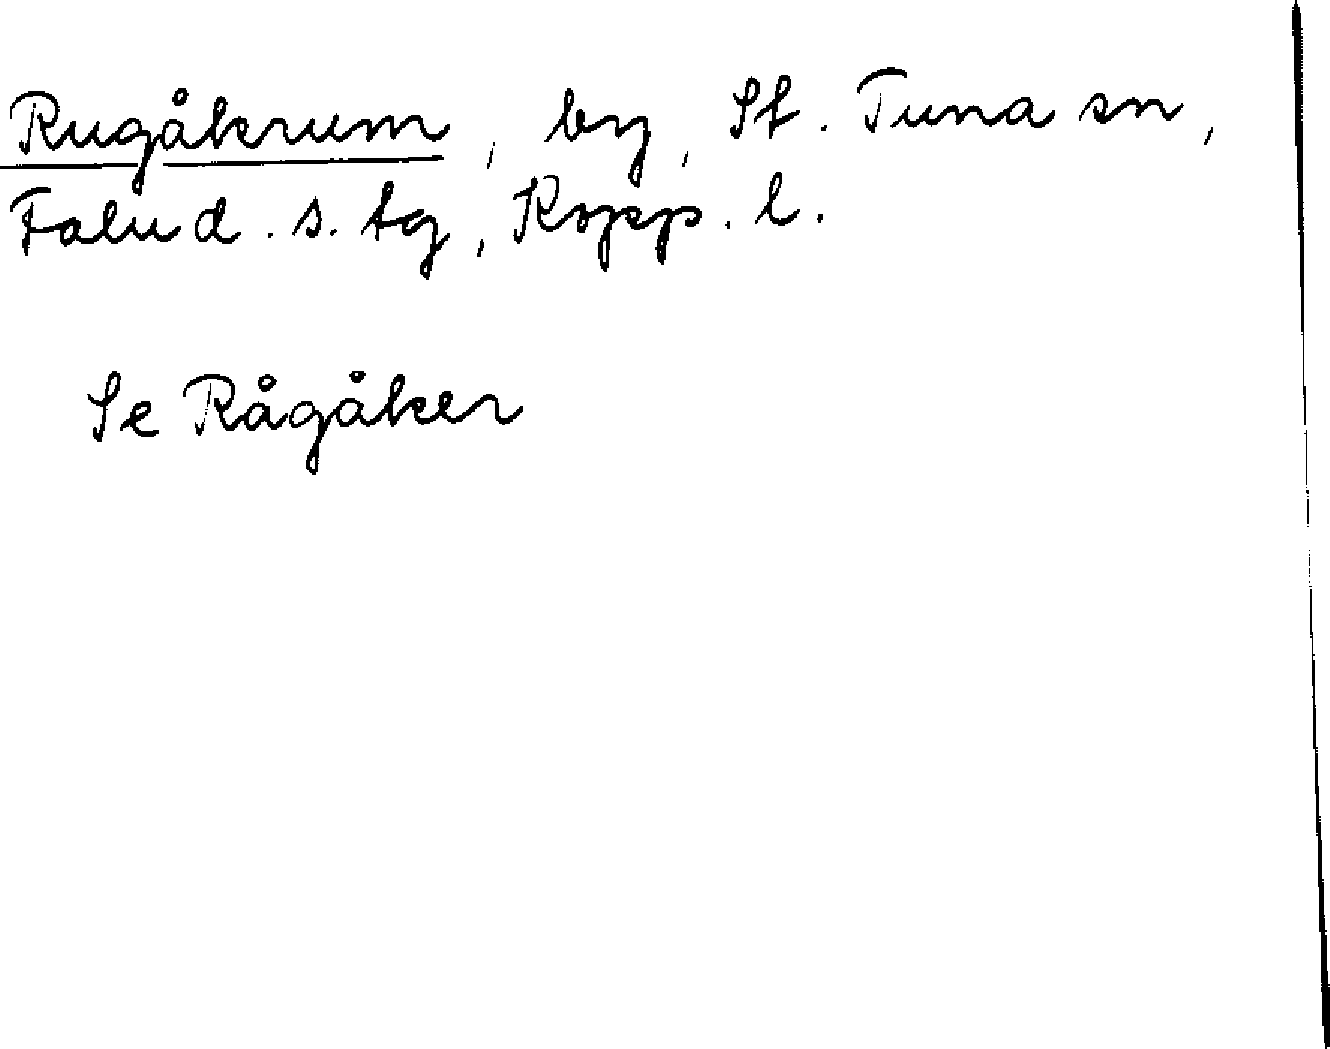 Rugåkrum, by, St. Tuna sn,
Falu d. s. tg, Kopp. l.
Se Rågåker